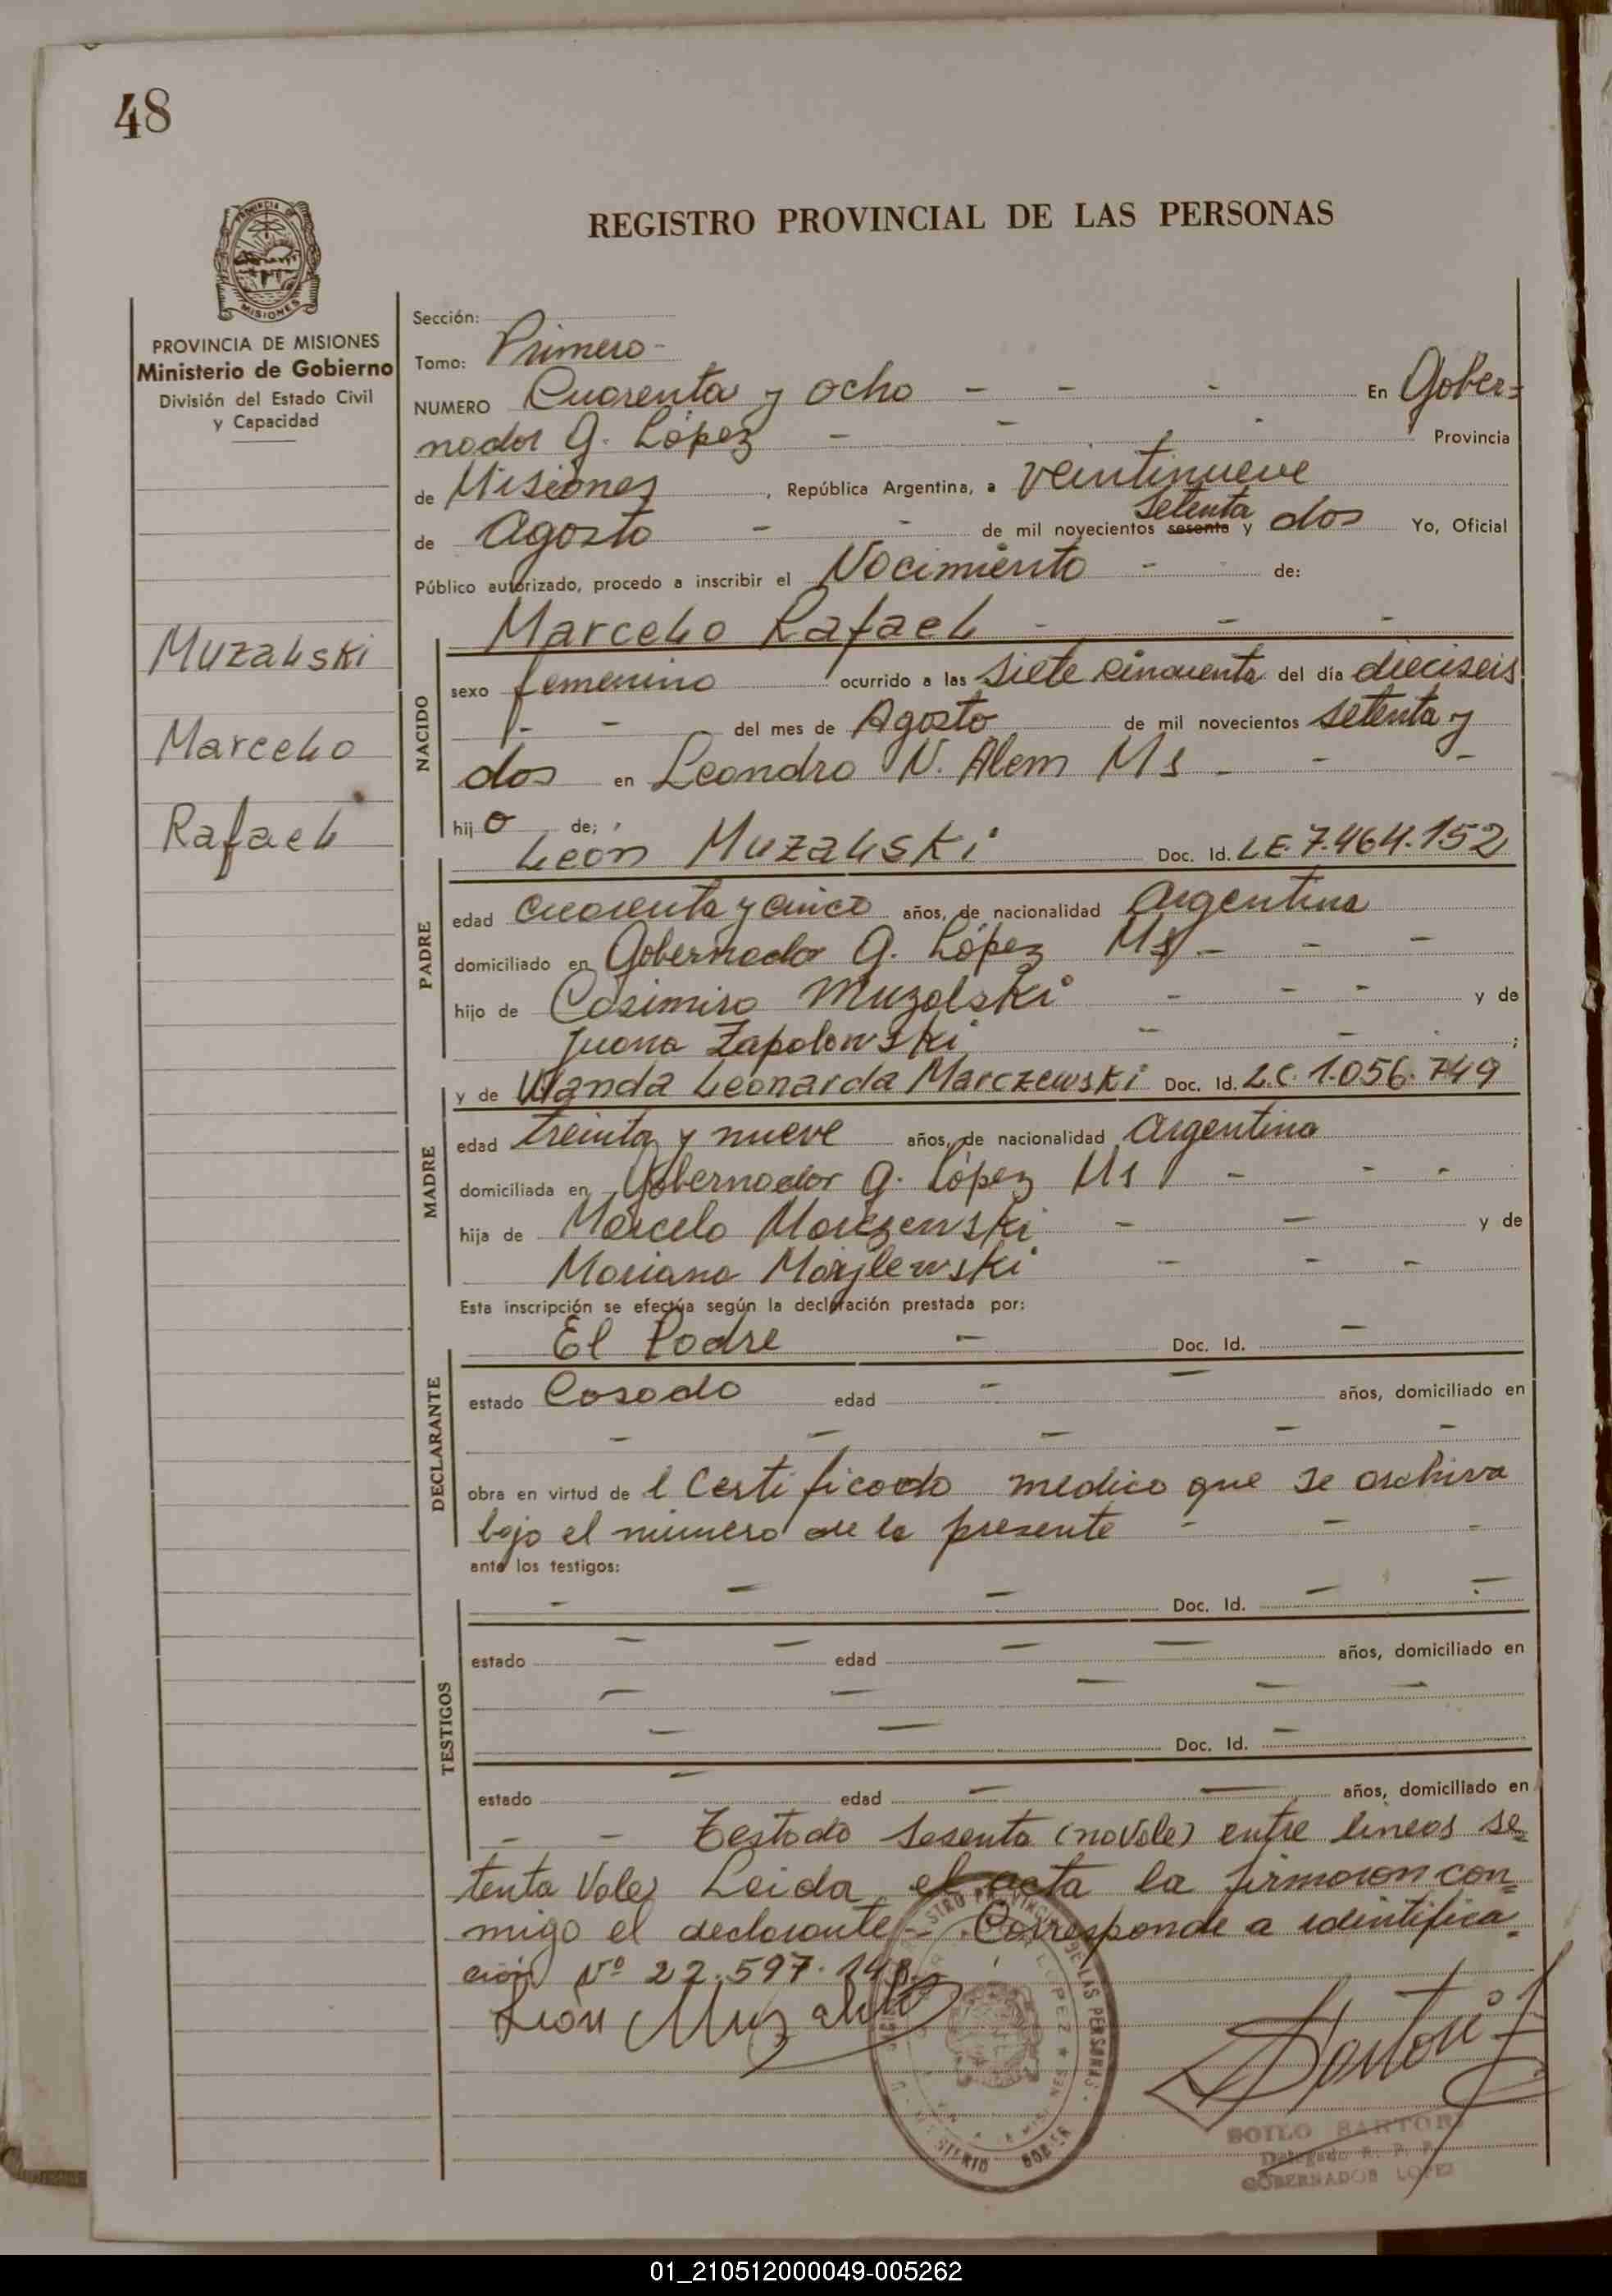 48
REGISTRO PROVINCIAL DE LAS PERSONAS
PROVINCIA DE MISIONES
MISIONES
PROVINCIA DE MISIONES
Ministerio de Gobierno
División del Estado Civil
y Capacidad
Muzalski
Marcelo
Rafael
Sección:
Tomo: Primero -
NUMERO Cuarenta y ocho - - - En Gober=
nador G. López - - - - Provincia
de Misiones, República Argentina, a veintinueve
setenta
de Agosto - - de mil novecientos sesenta y dos Yo, Oficial
Público autorizado, procedo a inscribir el Nacimiento - - de:
NACIDO
Marcelo Rafael - - -
sexo femenino ocurrido a las siete cincuenta del día dieciseis
- - del mes de Agosto de mil novecientos setenta y
dos en Leandro N. Alem Ms - - -
hijo de;
PADRE
León Muzalski Doc. Id. L.E. 7.464.152
edad cuarenta y cinco años, de nacionalidad Argentina
domiciliado en Gobernador G. López Ms - - -
hijo de Casimiro Muzalski - - - y de
Juana Zapolowski - - ;
MADRE
y de Wanda Leonarda Marczewski Doc. Id. L.C. 1.056.749
edad treinta y nueve años, de nacionalidad Argentina
domiciliada en Gobernador G. López Ms - - -
hija de Marcelo Marczewski - - y de
Mariana - - -
Esta inscripción se efectúa según la declaración prestada por:
DECLARANTE
El Padre - Doc. Id. -
estado Casado edad - - años, domiciliado en
- - - - -
obra en virtud de l Certificado medico que se archiva
bajo el número de la presente - - -
ante los testigos:
TESTIGOS
- - - Doc. Id. - -
estado - - edad - - años, domiciliado en
- - - - -
- - Doc. Id. -
estado - edad - - años, domiciliado en
- - Testado sesenta (no Vale) entre lineas se=
tenta Vale) Leida el acta la firmaron con=
migo el declarante - Corresponde a identifica=
ción Nº 22.597.
León Muzalski
Sartori
SARTORI
Delegado R. P. P.
GOBERNADOR LOPEZ
01_210512000049-005262